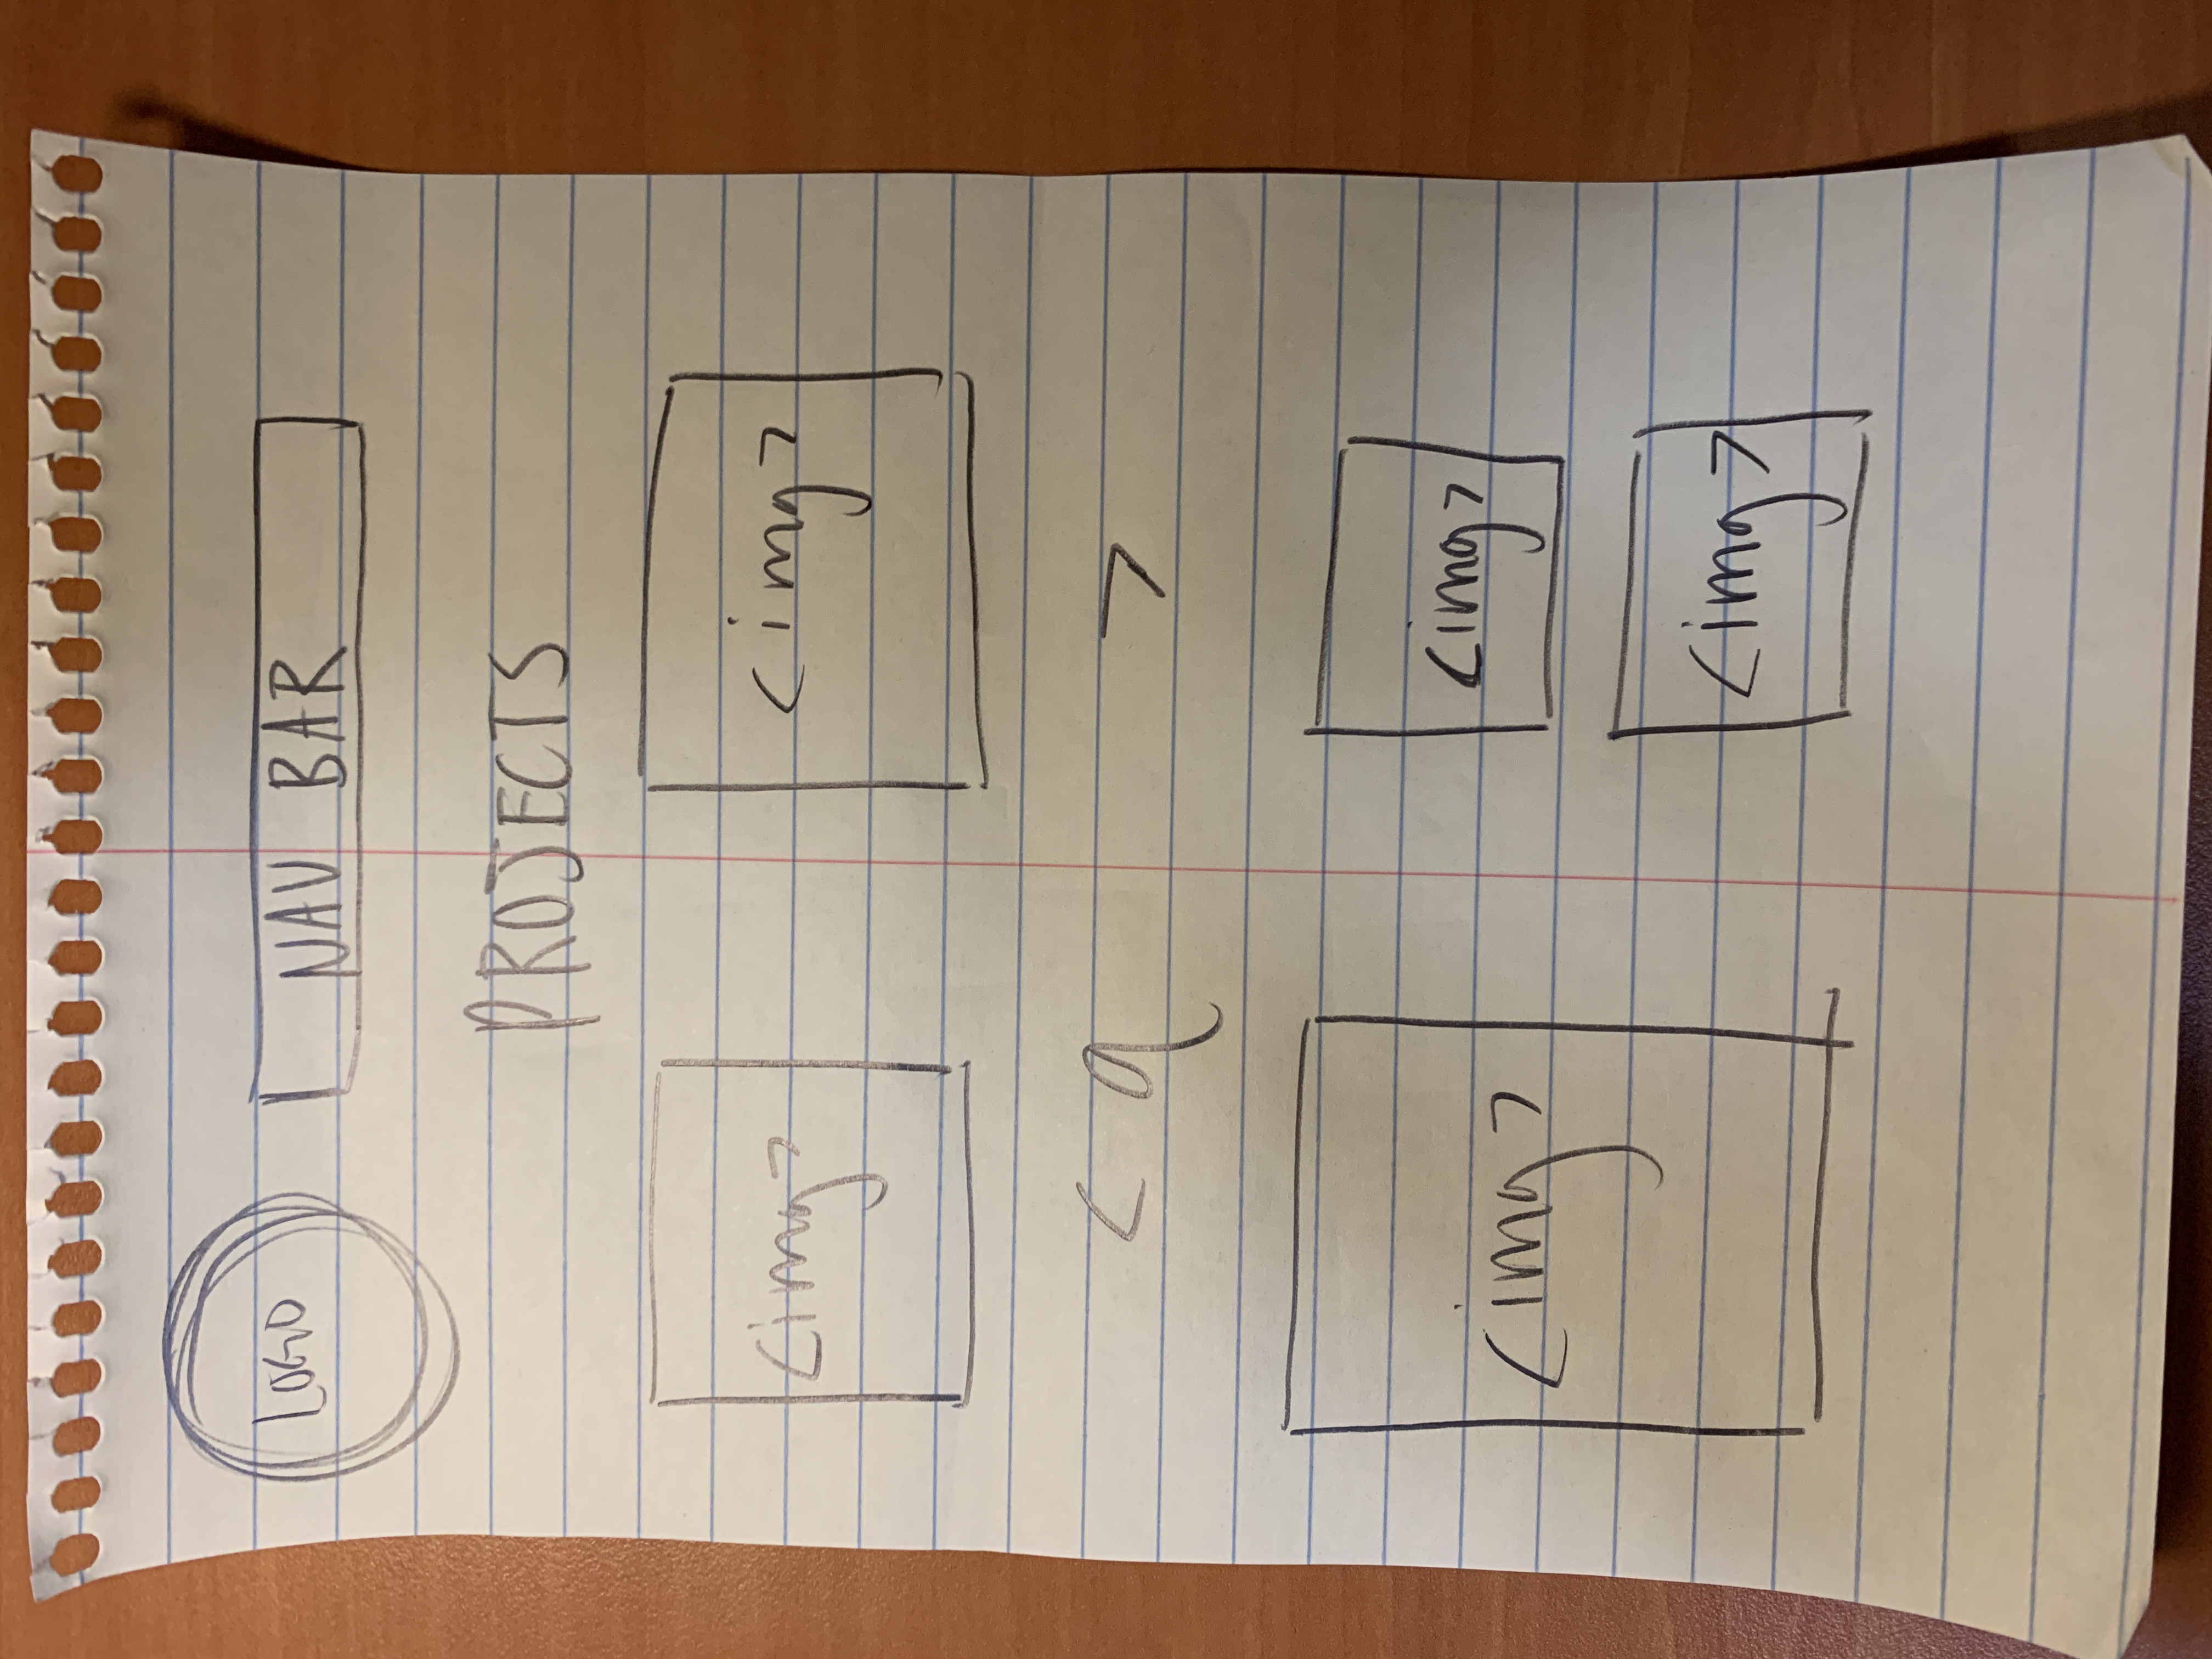 LOGO
NAV BAR
PROJECTS
<img> <img>
< a >
<img> <img>
<img>